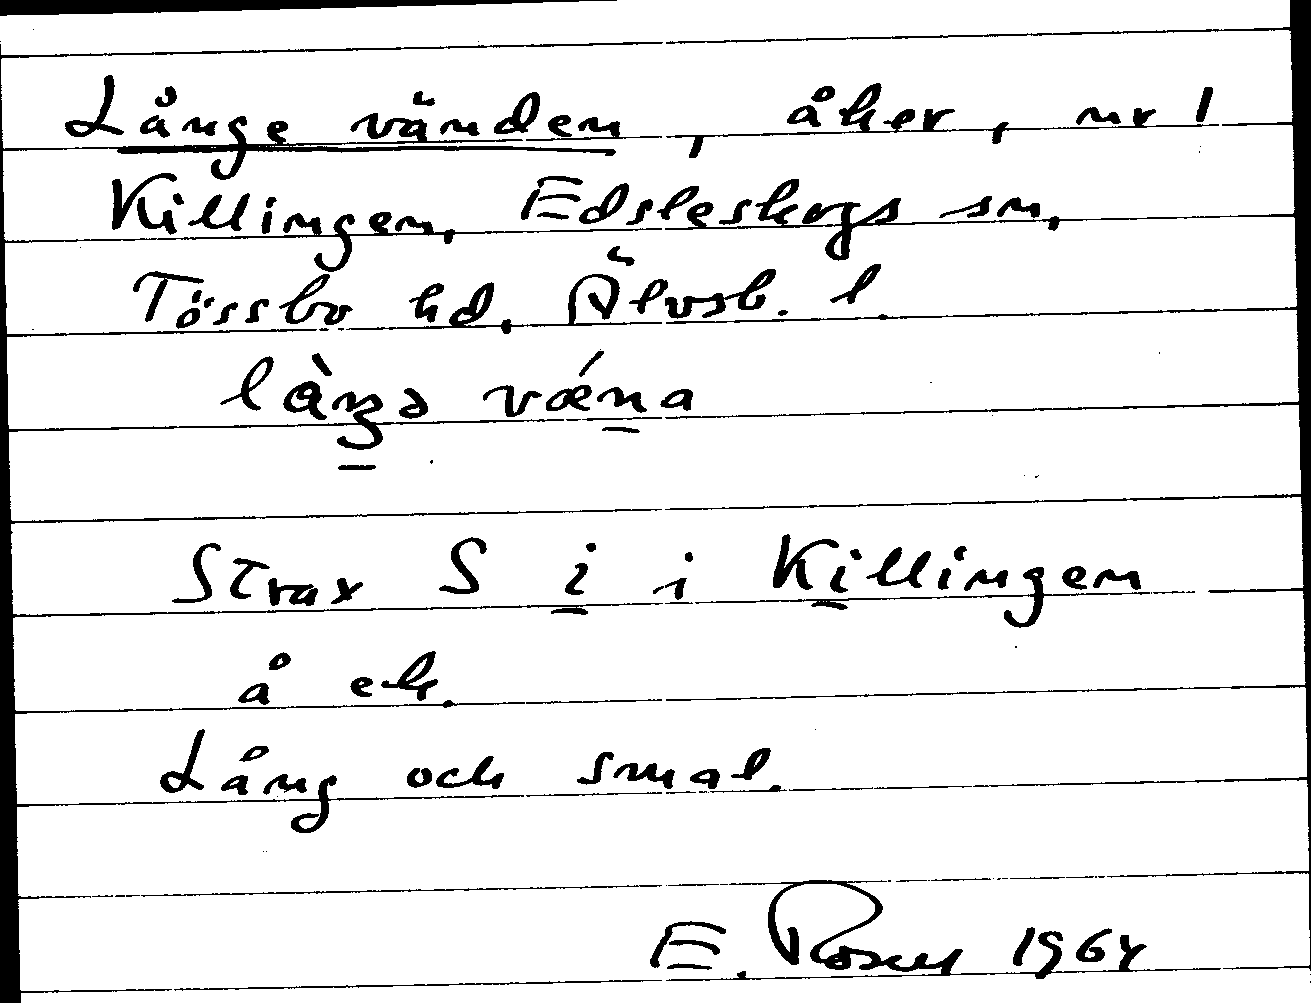 Långe vänden, åker, nr 1
Killingen, Edsleskogs sn,
Tössbo hd. Älvsb. l.
là̀ŋə vǽna
Strax S i i Killingen
å ek.
Lång och smal.
E. 1964